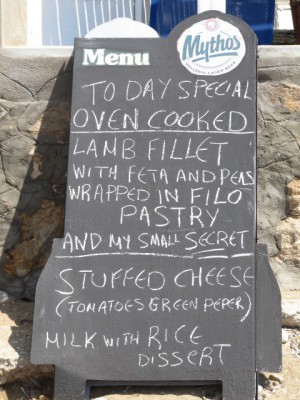 Menu
Mythos
HELLENIC LAGER BEER
TO DAY SPECIAL
OVEN COOKED
LAMB FILLET
WITH FETA AND PEAS
WRAPPED IN FILO
PASTRY
AND MY SMALL SECRET
STUFFED CHEESE
(TOMATOES GREEN PEPER)
MILK WITH RICE
DISSERT